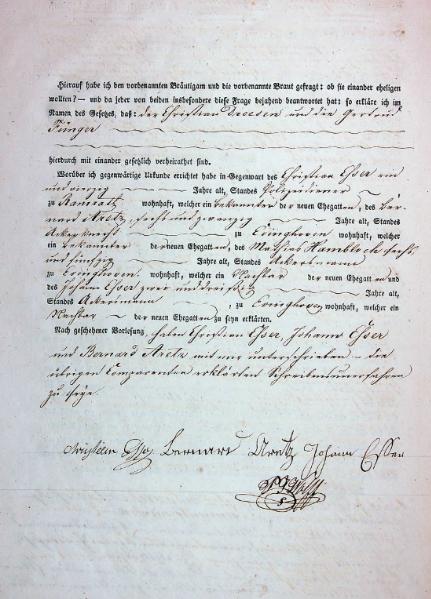 Hierauf habe ich den vorbenannten Bräutigam und die vorbenannte Braut gefragt: ob sie einander ehelichen
wollten? — und da jeder von beiden insbesondere diese Frage bejahend beantwortet hat: so erkläre ich im
Namen des Gesetzes, daß: der Christian und die Gertrud
Jünger
hierdurch mit einander gesetzlich verheirathet sind.
Worüber ich gegenwärtige Urkunde errichtet habe in Gegenwart des Christian Esser ein
und vierzig Jahre alt, Standes Polizeidiener
zu wohnhaft, welcher ein Bekannter der neuen Ehegatten, des Ber-
nard Aretz, sechs und zwanzig Jahre alt, Standes
Ackerknecht zu wohnhaft, welcher
ein Bekannter der neuen Ehegatten, des Mathias Hambloch sechs
und fünfzig Jahre alt, Standes Ackersmann
zu wohnhaft, welcher ein Nachbar der neuen Ehegatten und
des Johann Esser zwei und dreißig Jahre alt,
Standes Ackersmann zu wohnhaft, welcher ein
Nachbar der neuen Ehegatten zu seyn erklärten.
Nach geschehener Vorlesung, haben Christian Esser, Johann Esser
und Bernard Aretz mit mir unterschrieben – die
übrigen Comparenten erklärten Schreibensunerfahren
zu
Christian Esser Bernard Aretz Johann Esser